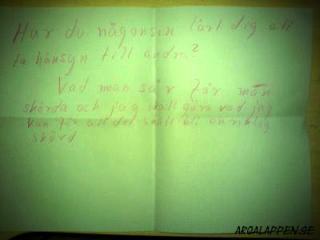 Har du någonsin lärt dig att
ta hänsyn till andra?
Vad man sår får man
skörda och jag skall göra vad jag
kan för att det skall bli en riklig
skörd
ARGALAPPEN.SE